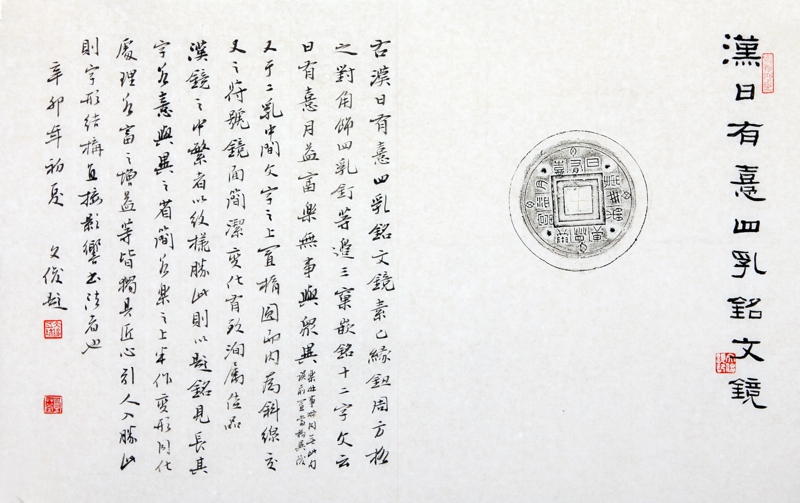 漢日有憙四乳銘文鏡
右漢日有憙四乳銘文鏡素已緣鈕周方格
之對角飾四乳釘等邊三窠嵌銘十二字文云
日有憙月益富樂無事與眾異
又于二乳中間欠字之上置橢圓形內為斜線交
叉之符號鏡面簡潔變化有致洵屬佳品
漢鏡之中繁者以紋樣勝此則以題銘見長其
字若憙與異之省簡若樂之上半作變形同化
處理若富之增益等皆獨具匠心引人入勝此
則字形結構直接影響書法者也
辛卯年初夏 文俊題